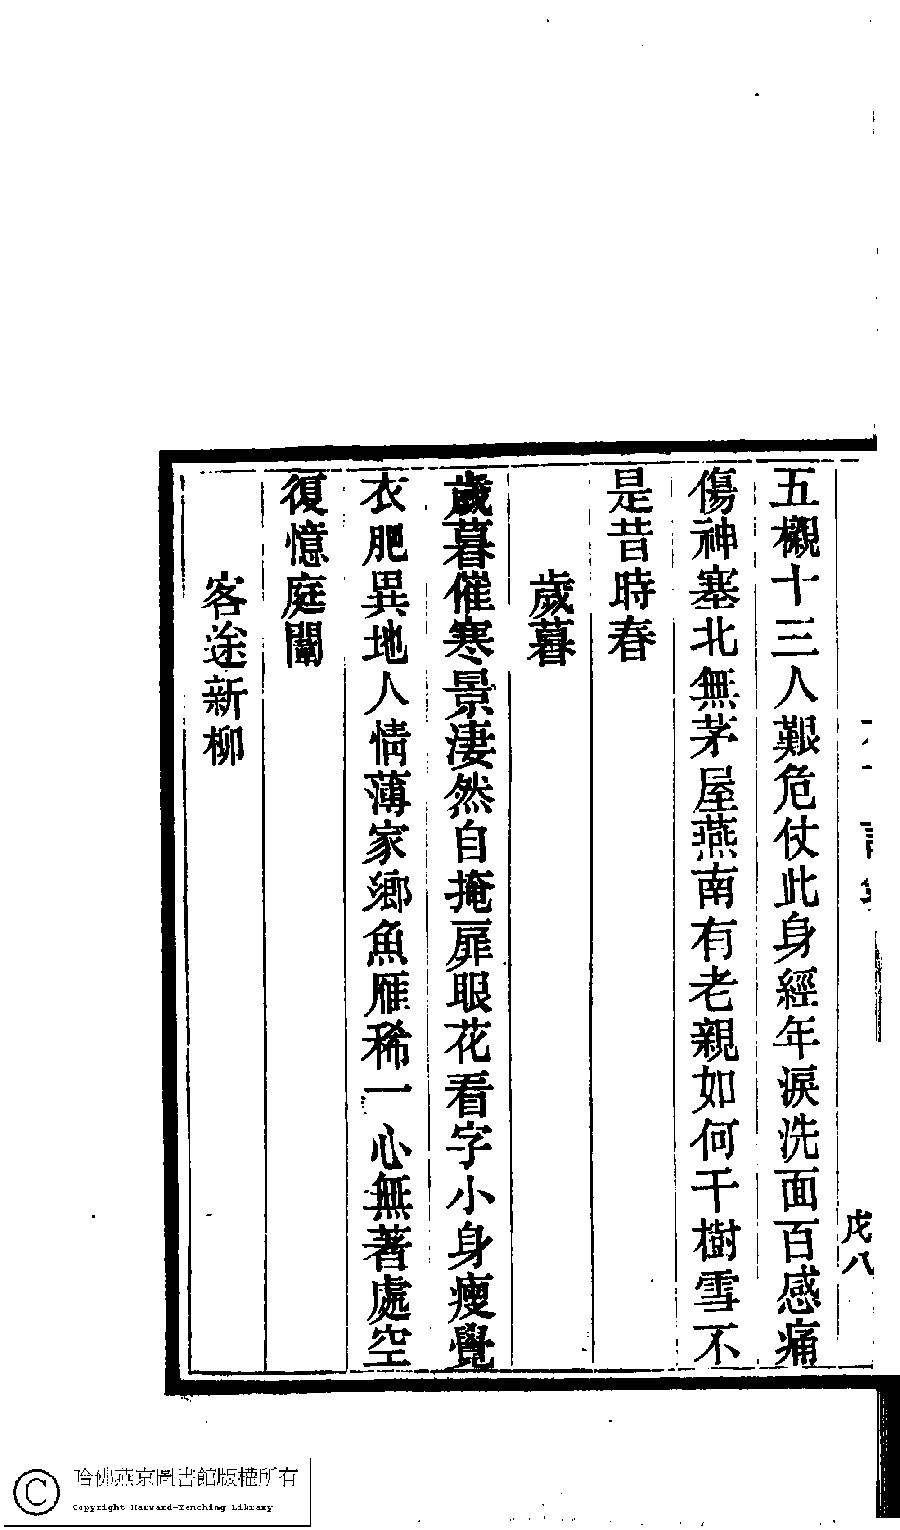 五櫬十三人艱危仗此身經年淚洗面百感痛
傷神塞北無茅屋燕南有老親如何干樹雪不
是昔時春
歲暮
歲暮催寒景淒然自掩扉眼花看字小身瘦覺
衣肥異地人情薄家鄉魚雁稀一心無著處空
復憶庭闈
客途新柳
戊八
哈佛燕京圖書館版權所有
Copyright Harvard-Yenching Library